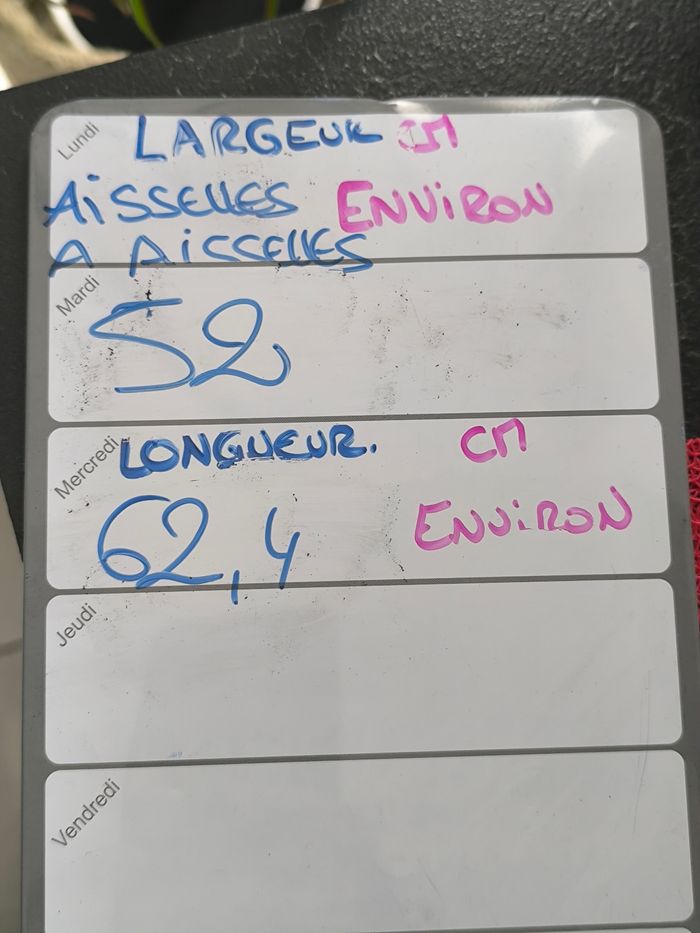 Lundi
LARGEUR CM
AiSSELLES ENViRON
A AiSSELLES
Mardi
52
Mercredi
LONGUEUR. CM
ENViRON
62,4
Jeudi
Vendredi